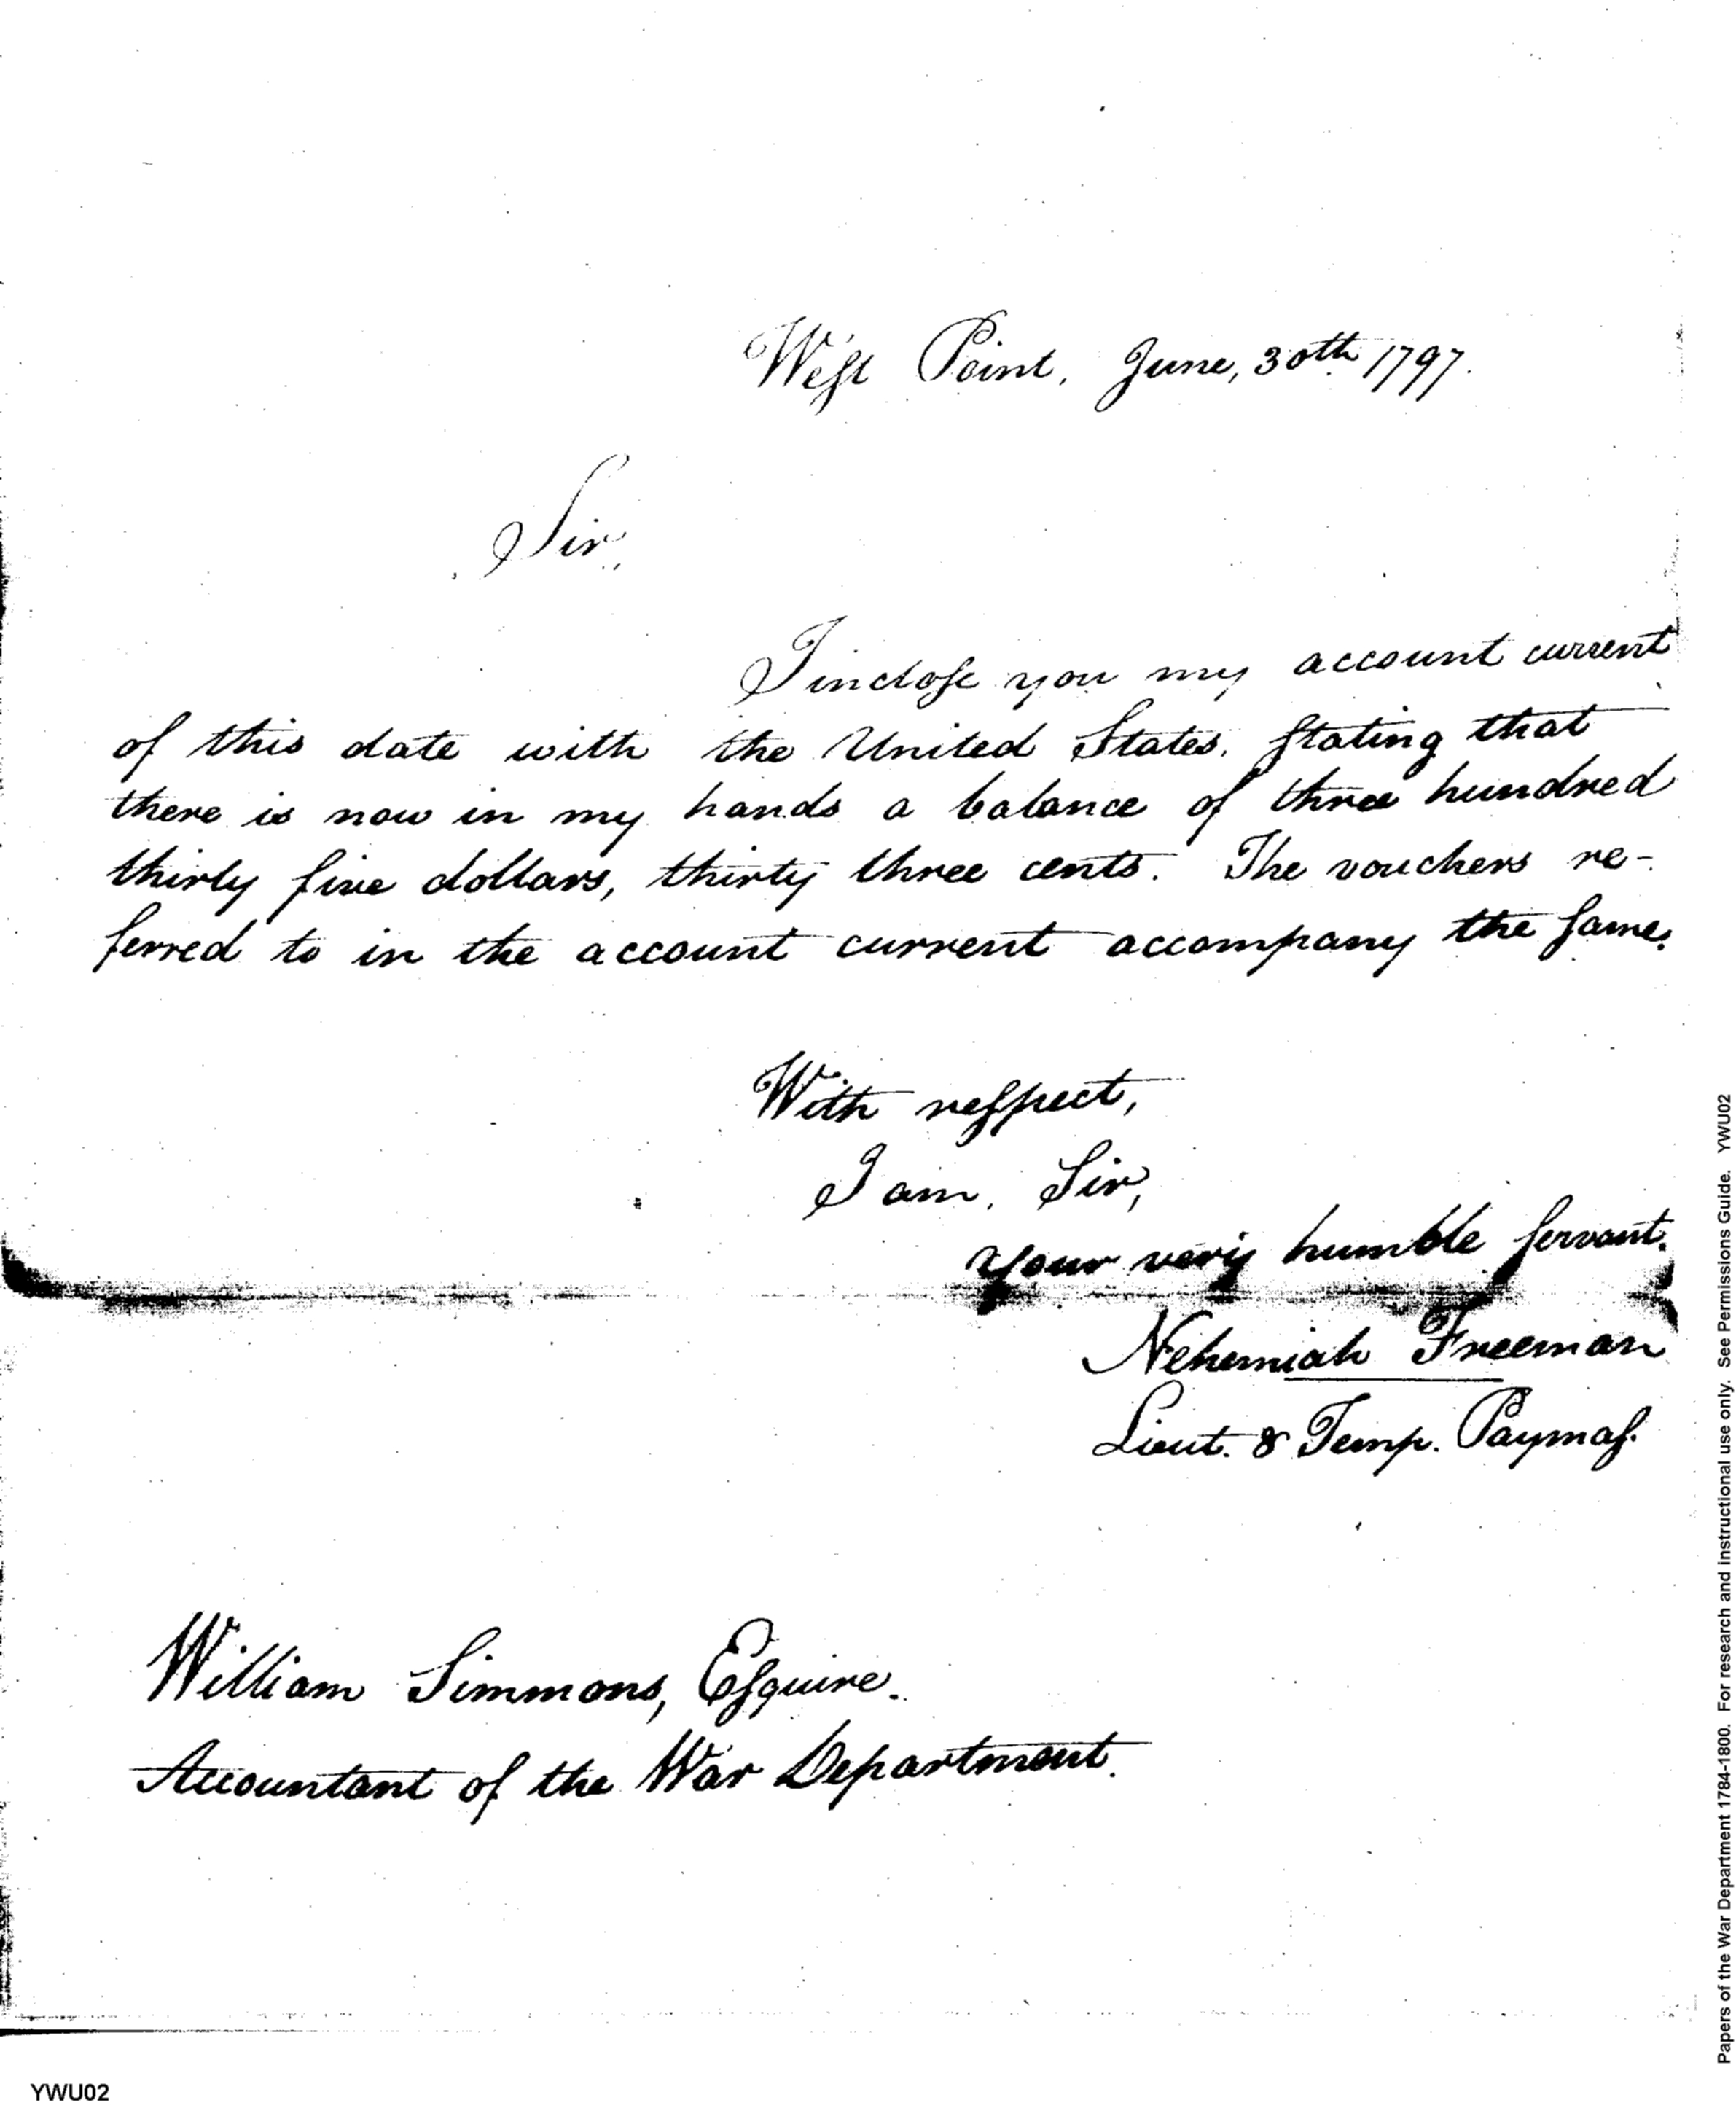 West Point, June, 30th 1797.
Sir,
I inclose you my account current
of this date with the United States, stating that
there is now in my hands a balance of three hundred
thirty five dollars, thirty three cents. The vouchers re-
ferred to in the account current accompany the same.
With respect,
I am, Sir,
your very humble servant.
Nehemiah Freeman
Lieut. & Temp. Paymas.
William Simmons, Esquire.
Accountant of the War Department.
YWU02
Papers of the War Department 1784-1800. For research and instructional use only. See Permissions Guide. YWU02